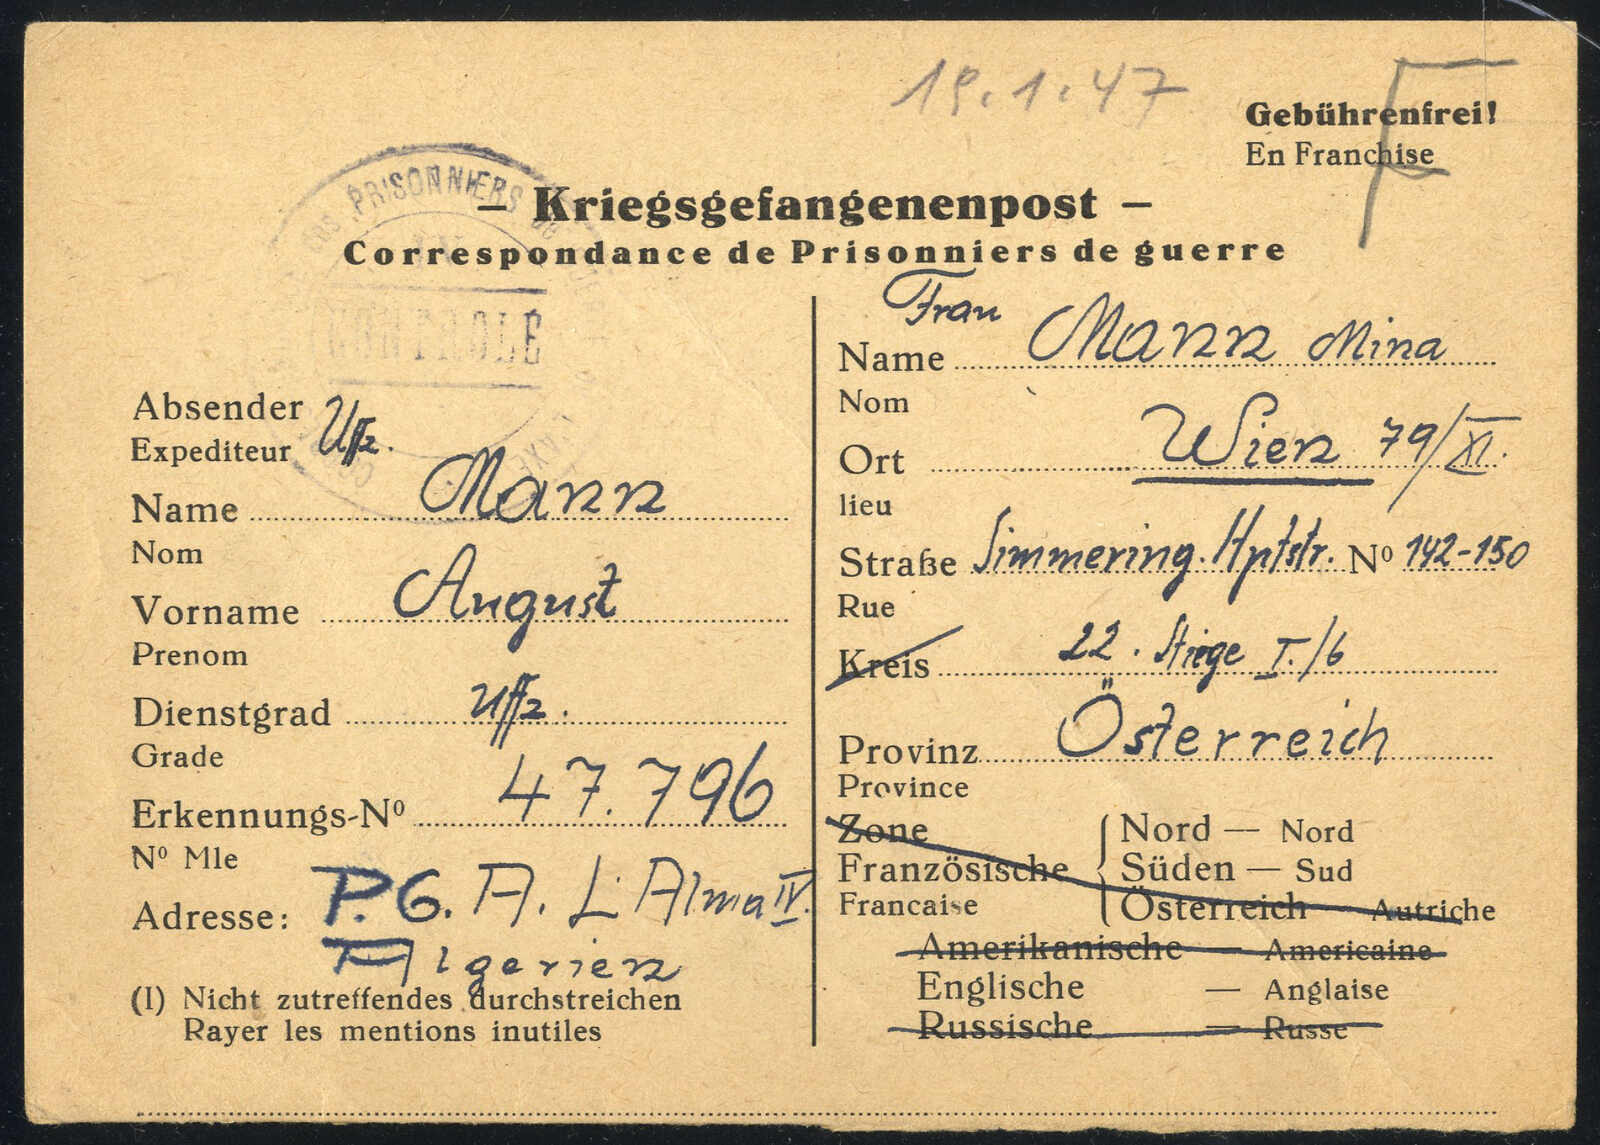 19.1.47
F
Gebührenfrei!
En Franchise
PRISONNIERS DE
– Kriegsgefangenenpost –
Correspondance de Prisonniers de guerre
CONTROLE
Absender Uffz.
Expediteur
Name Mann
Nom
Vorname August
Prenom
Dienstgrad Uffz.
Grade
Erkennungs-Nº 47.796
Nº Mle
Adresse: P.G.A. L'Alma IV.
Algerien
(1) Nicht zutreffendes durchstreichen
Rayer les mentions inutiles
Frau
Name Mann Mina
Nom
Ort Wien 79/XI.
lieu
Straße Simmering. Hptstr. Nº 142-150
Rue
Kreis 22. Stiege I./6
Provinz Österreich
Province
Zone
Französische
Francaise
Nord — Nord
Süden — Sud
Österreich — Autriche
Amerikanische — Americaine
Englische — Anglaise
Russische — Russe